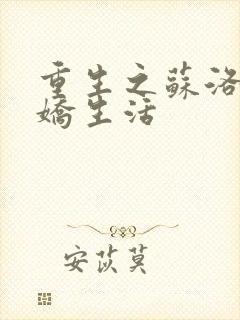 重生之蘇洛
嬌生活
安苡莫